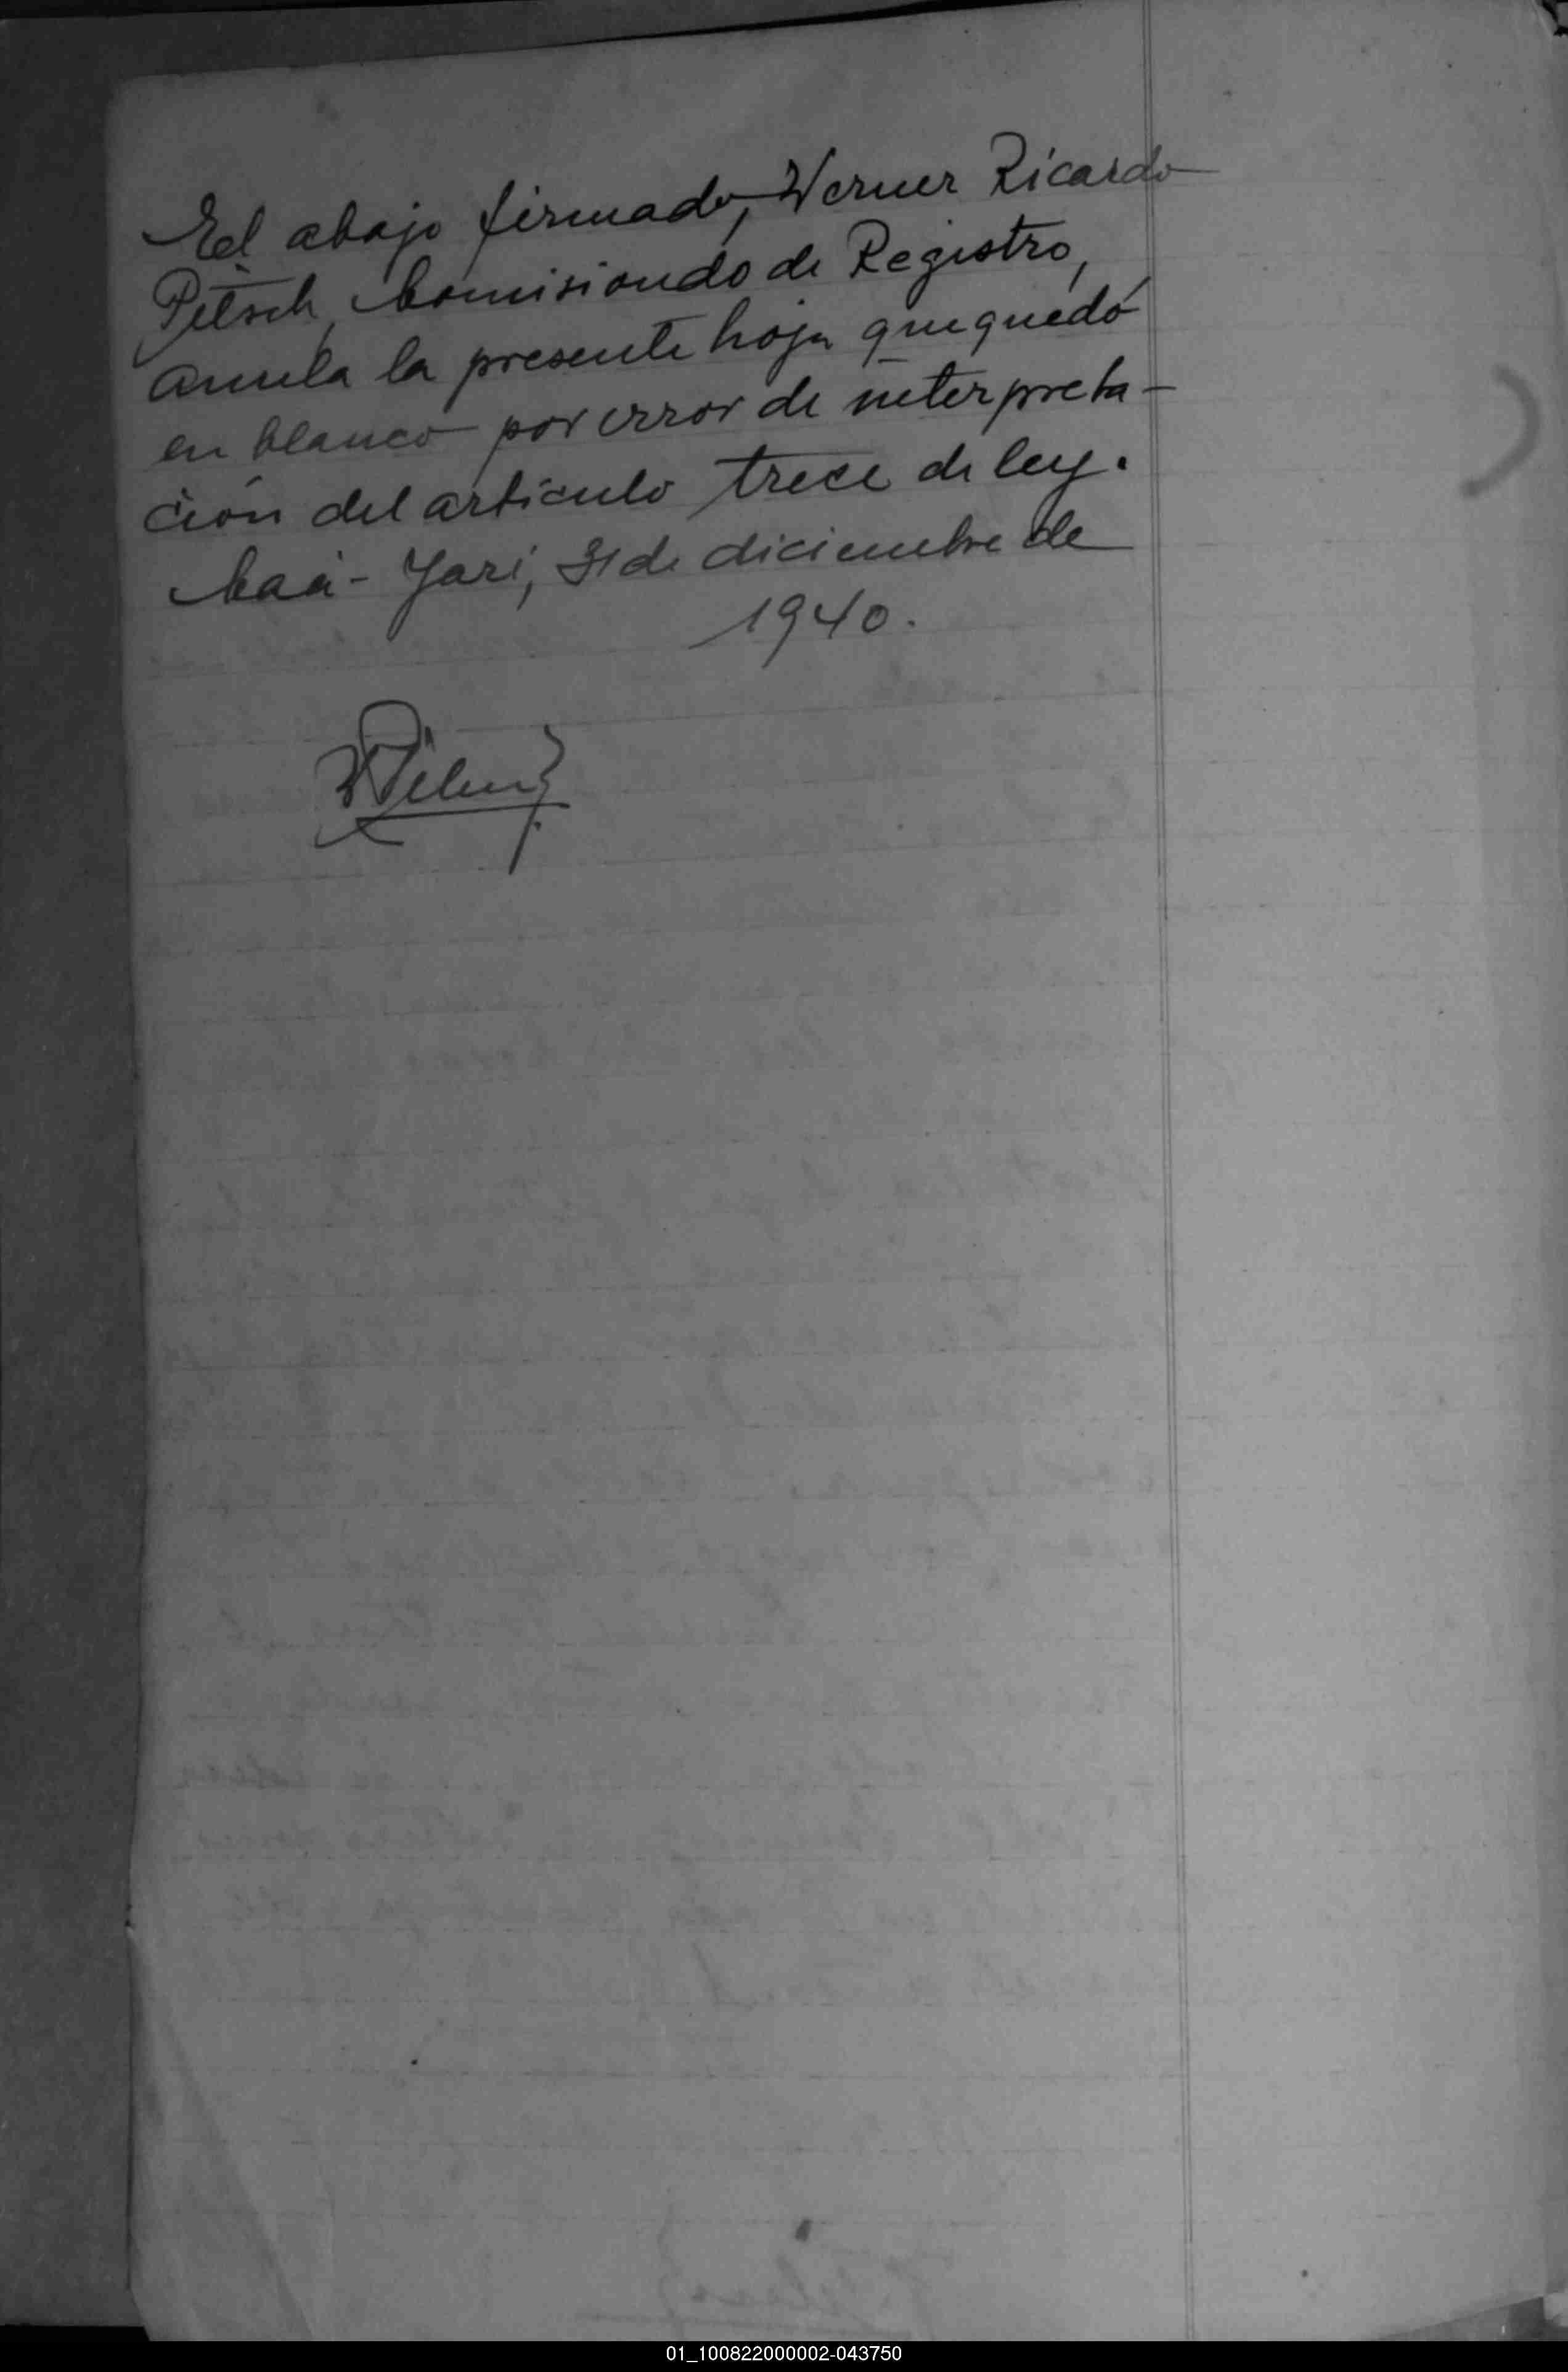 El abajo firmado, Werner Ricardo
Pitsch, Comisionado de Registro,
anula la presente hoja que quedó
en blanco por error de interpreta-
ción del articulo trece de ley.
Caá-Yarí, 31 de diciembre de
1940.
01_100822000002-043750